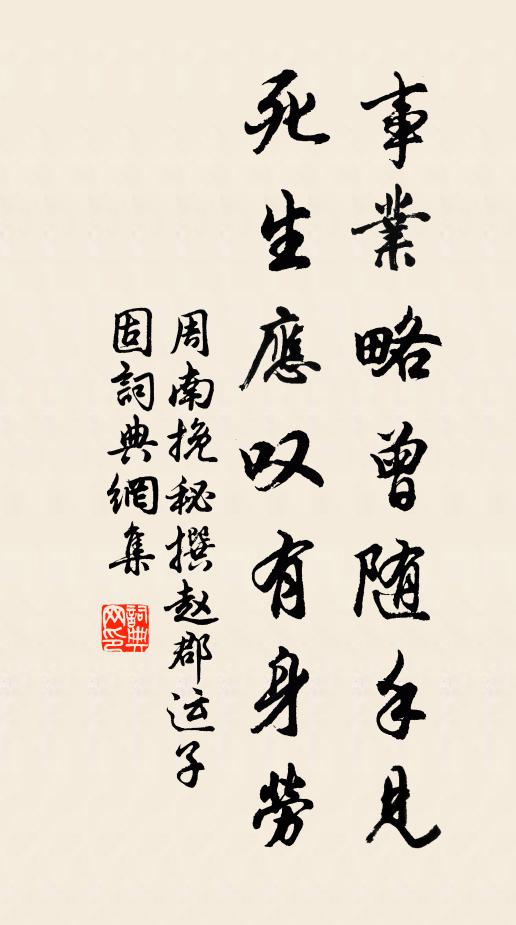 事業略曾随手見
死生應叹有身勞
周南挽秘撰赵郡运子
固詞典網集
詞典網印